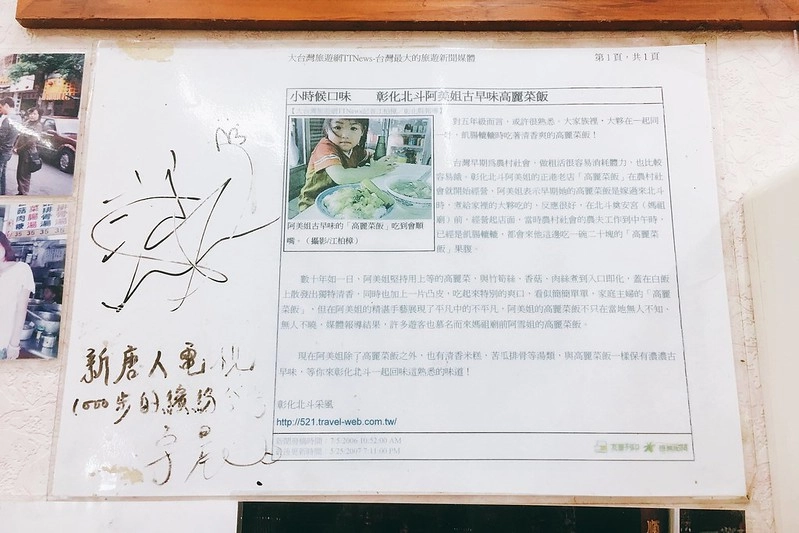 大台灣旅遊網TTNews-台灣最大的旅遊新聞媒體
第1頁，共1頁
小時候口味 彰化北斗阿美姐古早味高麗菜飯
對五年級而言，或許很熟悉。大家族裡，大夥在一起回
時，飢腸轆轆時吃著清香爽的高麗菜飯！
台灣早期為農村社會，做粗活很容易消耗體力，也比較
容易餓，彰化北斗阿美姐的正港老店「高麗菜飯」在農村社
會就開始經營，阿美姐表示早期她的高麗菜飯是嫁過來北斗
時，煮給家裡的大夥吃的，反應很好，在北斗奠安宮（媽祖
廟）前，經營起店面，當時農村社會的農夫工作到中午時，
已經是飢腸轆轆，都會來他這邊吃一碗二十塊的「高麗菜
飯」果腹。
阿美姐古早味的「高麗菜飯」吃到會順
嘴。（攝影/江柏樟）
數十年如一日，阿美姐堅持用上等的高麗菜，與竹筍絲、香菇、肉絲煮到入口即化，蓋在白飯
上散發出獨特清香，同時也加上一片凸皮，吃起來特別的爽口，看似簡簡單單，家庭主婦的「高麗
菜飯」，但在阿美姐的精湛手藝展現了平凡中的不平凡，阿美姐的高麗菜飯不只在當地無人不知、
無人不曉，媒體報導結果，許多遊客也慕名而來媽祖廟前阿雪姐的高麗菜飯。
現在阿美姐除了高麗菜飯之外，也有清香米糕，苦瓜排骨等湯類，與高麗菜飯一樣保有濃濃古
早味，等你來彰化北斗一起回味這熟悉的味道！
彰化北斗采風
http://521.travel-web.com.tw/
新聞發佈時間：7/5/2006 10:52:00 AM
最後更新時間：5/25/2007 7:11:00 PM
新唐人電視
1000步的繽紛